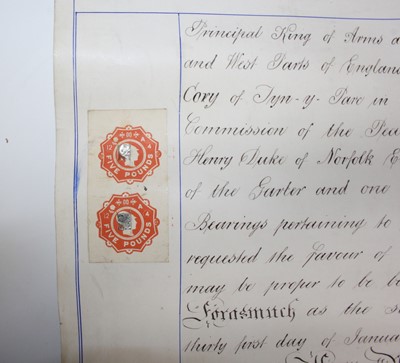 Principal King of Arms
and West Parts of England
Cory of Tyn-y-Parc in
Commission of the Pea
Henry Duke of Norfolk E
of the Garter and one
Bearings pertaining to
requested the favour of
may be proper to be
Forasmuch as the
thirty first day of Janua
FIVE POUNDS
FIVE POUNDS